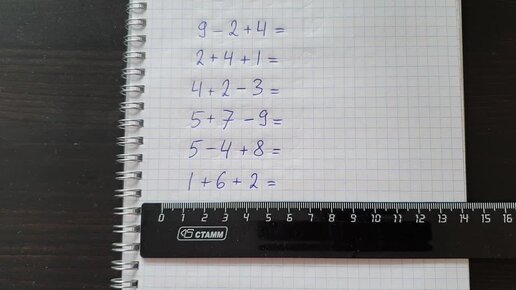 9 - 2 + 4 =
2 + 4 + 1 =
4 + 2 - 3 =
5 + 7 - 9 =
5 - 4 + 8 =
1 + 6 + 2 =
0 1 2 3 4 5 6 7 8 9 10 11 12 13 14 15 16
СТАММ